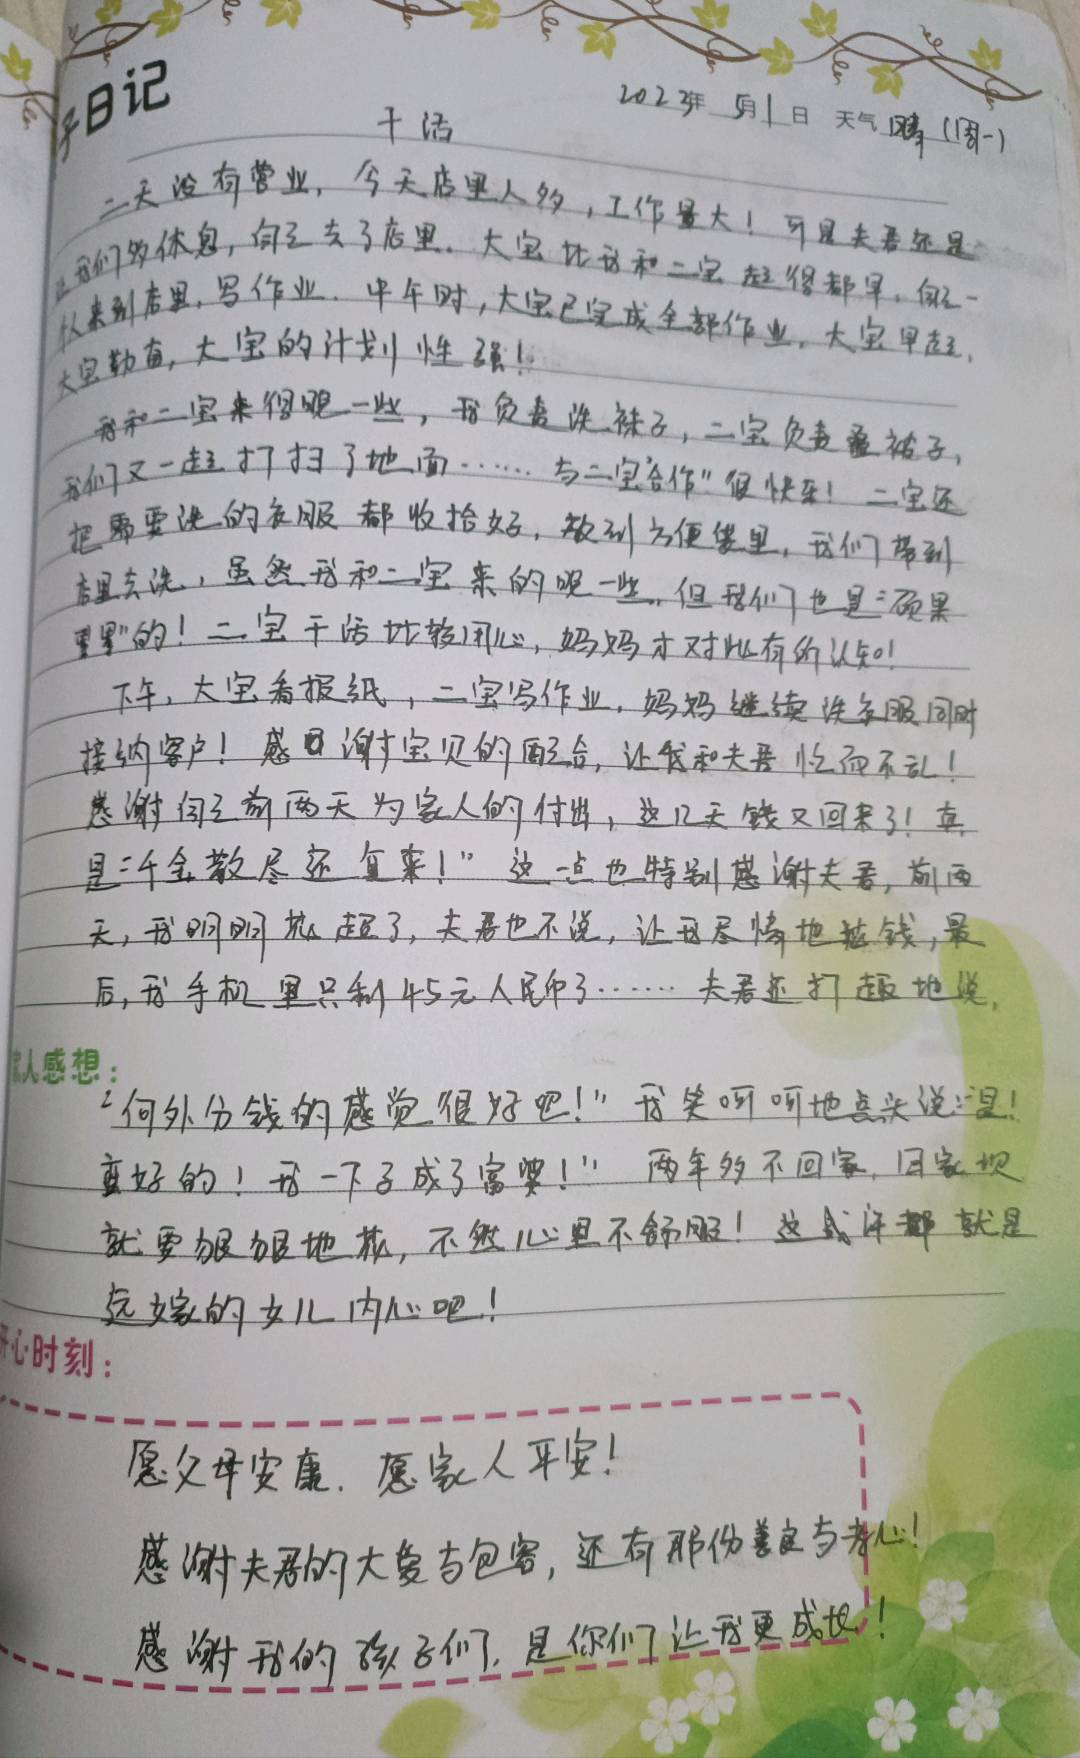 子日记
2023年 5月1日 天气 晴 (周一)
干活
二天没有营业，今天店里人多，工作量大！可是夫君还是
让我们多休息，自己去了店里。大宝比我和二宝起得都早，自己一
人来到店里，写作业。中午时，大宝已完成全部作业，大宝早起，
大宝勤奋，大宝的计划性强！
我和二宝来得晚一些，我负责洗袜子，二宝负责叠被子，
我们又一起打扫了地面……与二宝"合作"很快乐！二宝还
把需要洗的衣服都收拾好，放到方便袋里，我们带到
店里去洗，虽然我和二宝来的晚一些，但我们也是"硕果
累累"的！二宝干活比较用心，妈妈才对此有所认知！
下午，大宝看报纸，二宝写作业，妈妈继续洗衣服同时
接纳客户！感谢宝贝的配合，让我和夫君忙而不乱！
感谢自己前两天为家人的付出，这几天钱又回来了！真
是"千金散尽还复来！"这一点也特别感谢夫君，前两
天，我明明花超了，夫君也不说，让我尽情地花钱，最
后，我手机里只剩45元人民币了……夫君还打趣地说，
家人感想：
"向外分钱的感觉很好吧！"我笑呵呵地点头说："是！
蛮好的！我一下子成了富婆！"两年多不回家，回家就
就要狠狠地花，不然心里不舒服！这或许都就是
远嫁的女儿内心吧！
开心时刻：
愿父母安康，愿家人平安！
感谢夫君的大爱与包容，还有那份善良与孝心！
感谢我的孩子们，是你们让我更成长！